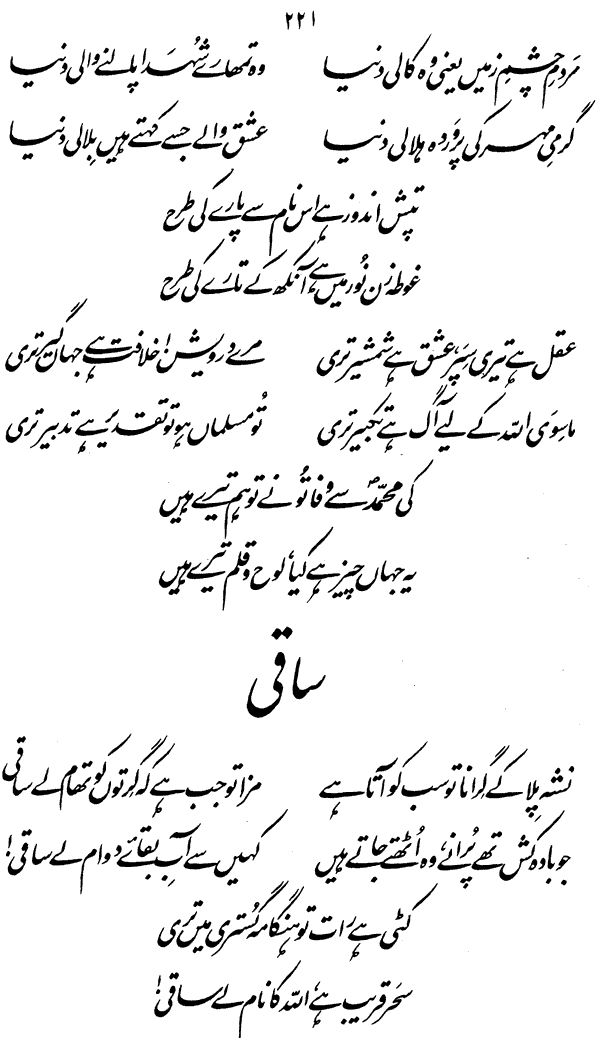 ۲۲۱
مَردمِ چشمِ زمیں یعنی وہ کالی دنیا وہ تمھارے شُہَدا پالنے والی دنیا
گرمیِ مہر کی پَروَردہ ہلالی دنیا عشق والے جسے کہتے ہیں بِلالی دنیا
تپش اندوز ہے اس نام سے پارے کی طرح
غوطہ زن نُور میں ہے آنکھ کے تارے کی طرح
عقل ہے تیری سِپَر، عشق ہے شمشیر تری مرے درویش! خلافت ہے جہاں گیر تری
ماسِوَی اللہ کے لیے آگ ہے تکبیر تری تُو مسلماں ہو تو تقدیر ہے تدبیر تری
کی محمدؐ سے وفا تُو نے تو ہم تیرے ہیں
یہ جہاں چیز ہے کیا، لوح و قلم تیرے ہیں
ساقی
نشہ پِلا کے گرانا تو سب کو آتا ہے مزا تو جب ہے کہ گرتوں کو تھام لے ساقی
جو بادہ کش تھے پُرانے، وہ اُٹھتے جاتے ہیں کہیں سے آبِ بقائے دوام لے ساقی!
کٹی ہے رات تو ہنگامہ گُستری میں تری
سَحَر قریب ہے، اللہ کا نام لے ساقی!